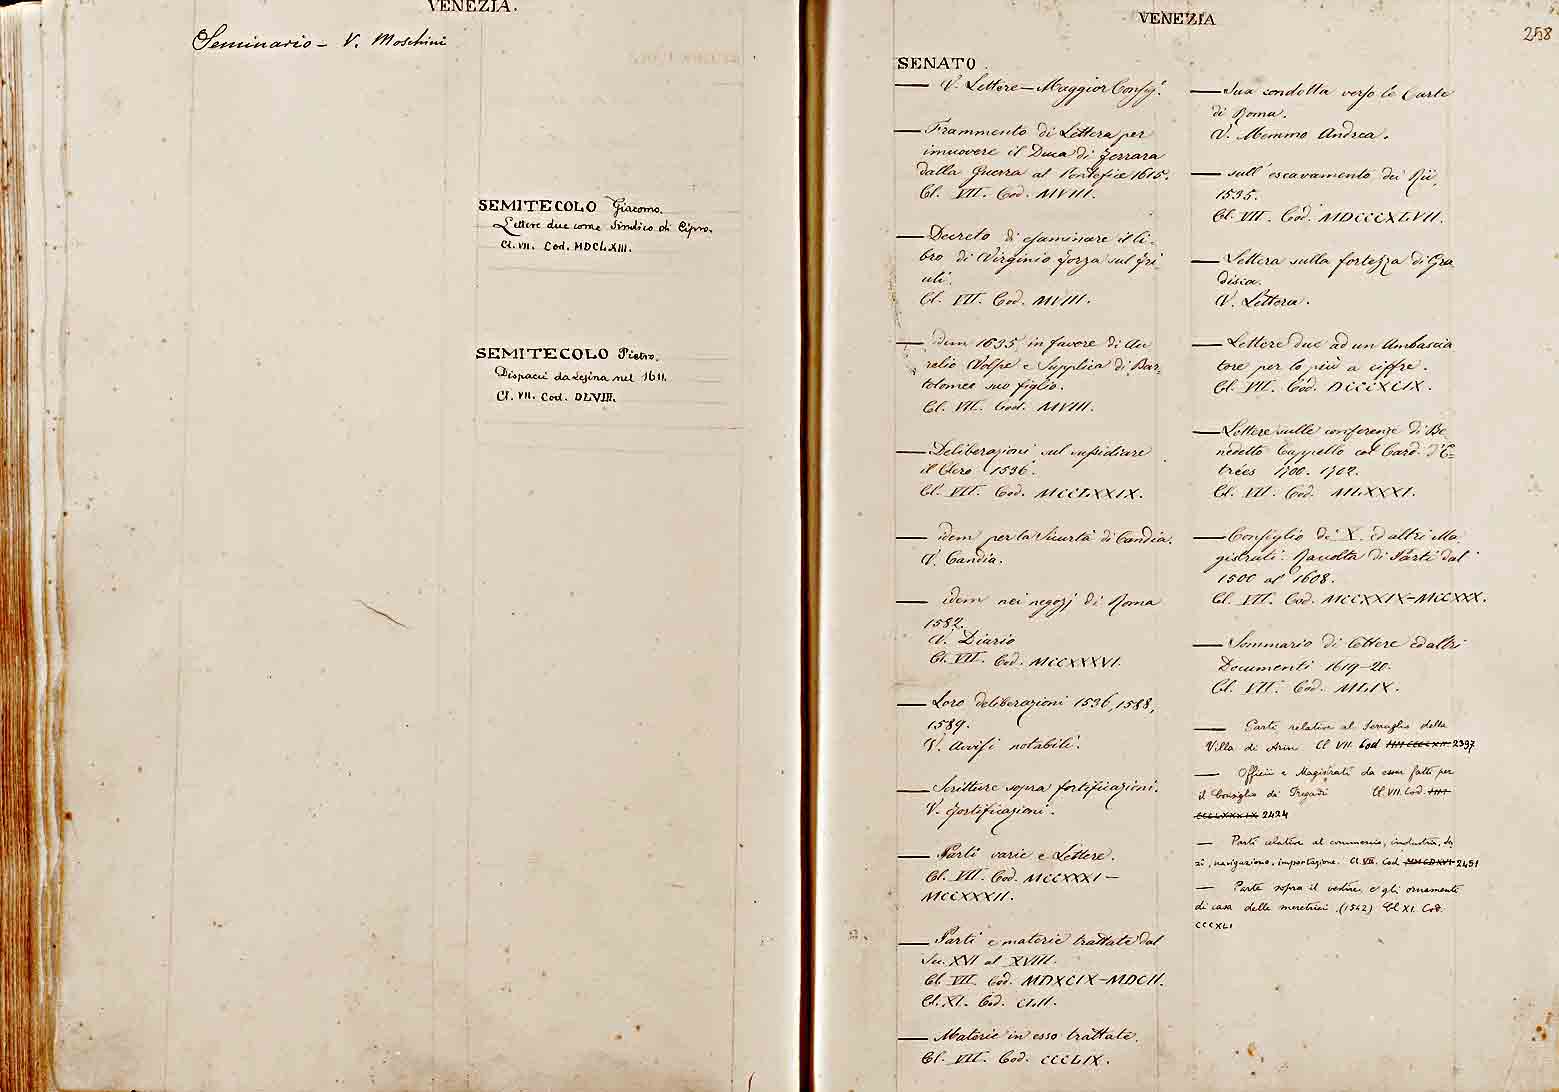 VENEZIA.
Seminario - V. Moschini
SEMITECOLO Giacomo.
Lettere due come Sindico di Cipro.
Cl. VII. Cod. MDCLXIII.
SEMITECOLO Pietro.
Dispacci da Lesina nel 1611.
Cl. VII. Cod. DLVIII.
VENEZIA
258
SENATO.
— V. Lettere — Maggior Consig.
— Frammento di Lettera per
imuovere il Duca di Ferrara
dalla Guerra al Pontefice 1615.
Cl. VII. Cod. MVIII.
— Decreto di esaminare il li-
bro di Virginio Forza sul Fri
uli.
Cl. VII. Cod. MVIII.
— idem 1635 in favore di Au
relio Volpe e Supplica di Bar-
tolomeo suo figlio.
Cl. VII. Cod. MVIII.
— Deliberazioni sul sussidiare
il Clero 1536.
Cl. VII. Cod. MCCLXXIX.
— idem per la Sicurtà di Candia.
V. Candia.
— idem nei negozj di Roma
1582.
V. Diario
Cl. VII. Cod. MCCXXXVI.
— Loro deliberazioni 1536, 1588,
1589.
V. Avvisi notabili.
— Scritture sopra fortificazioni.
V. Fortificazioni.
— Parti varie e Lettere.
Cl. VII. Cod. MCCXXXI —
MCCXXXII.
— Parti e materie trattate dal
Sec. XVI al XVIII.
Cl. VII. Cod. MDXCIX — MDCII.
Cl. XI. Cod. CLII.
— Materie in esso trattate.
Cl. VII. Cod. CCCLIX.
— Sua condotta verso le Carte
di Roma.
V. Memmo Andrea.
— sull'escavamento dei Rii,
1535.
Cl. VII. Cod. MDCCCXLVII.
— Lettera sulla fortezza di Gra
disca.
V. Lettera.
— Lettere due ad un Ambascia
tore per lo più a ciffre.
Cl. VII. Cod. DCCCXCIX.
— Lettere sulle conferenze di Be
nedetto Cappello col Card. d'E-
trées 1700. 1702.
Cl. VII. Cod. MLXXXI.
— Consiglio di X. ed altri Ma
gistrati. Raccolta di Parti dal
1500 al 1608.
Cl. VII. Cod. MCCXXIX — MCCXXX.
— Sommario di Lettere ed altri
Documenti 1619-20.
Cl. VII. Cod. MLIX.
— Parte relativa al Serraglio della
Villa di Cl VII. Cod 2397
— Officii e Magistrati da esser fatti per
il Consiglio di Pregadi Cl. VII. Cod.
2424
— Parti relative al commercio, industria, da
zi, navigazione, importazione. Cl. VII. Cod. 2451
— Parte sopra il vestire e gli ornamenti
di casa delle meretrici. (1542) Cl XI. Cod.
CCCXLI